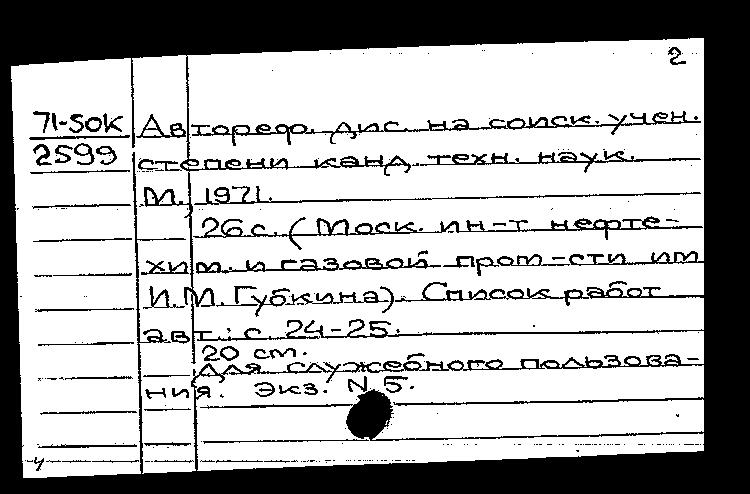 2
71-5ОК Автореф. дис. на соиск. учен.
2599 степени канд. техн. наук.
М., 1971.
26 с. (Моск. ин-т нефте-
хим. и газовой пром-сти им
И.М. Губкина). Список работ
авт.: с. 24-25.
20 cm.
Для служебного пользова-
ния. Экз. N 5.